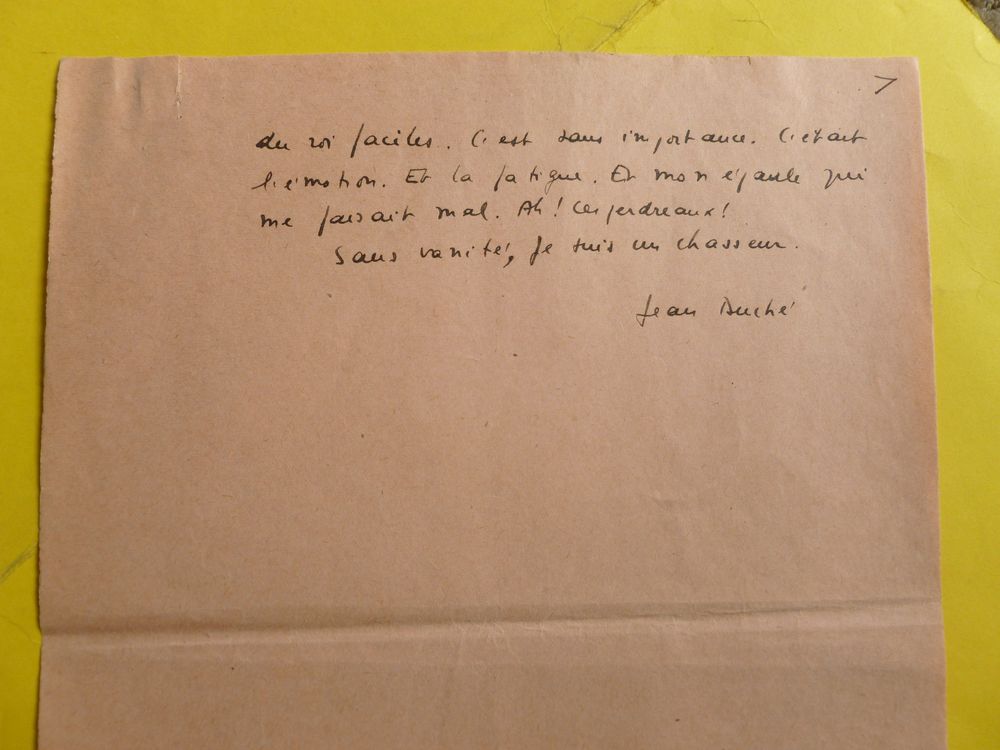 7
du roi faciles. C'est sans importance. C'était
l'émotion. Et la fatigue. Et mon épaule qui
me faisait mal. Ah ! Ces perdreaux !
Sans vanité, je suis un chasseur.
Jean Duché